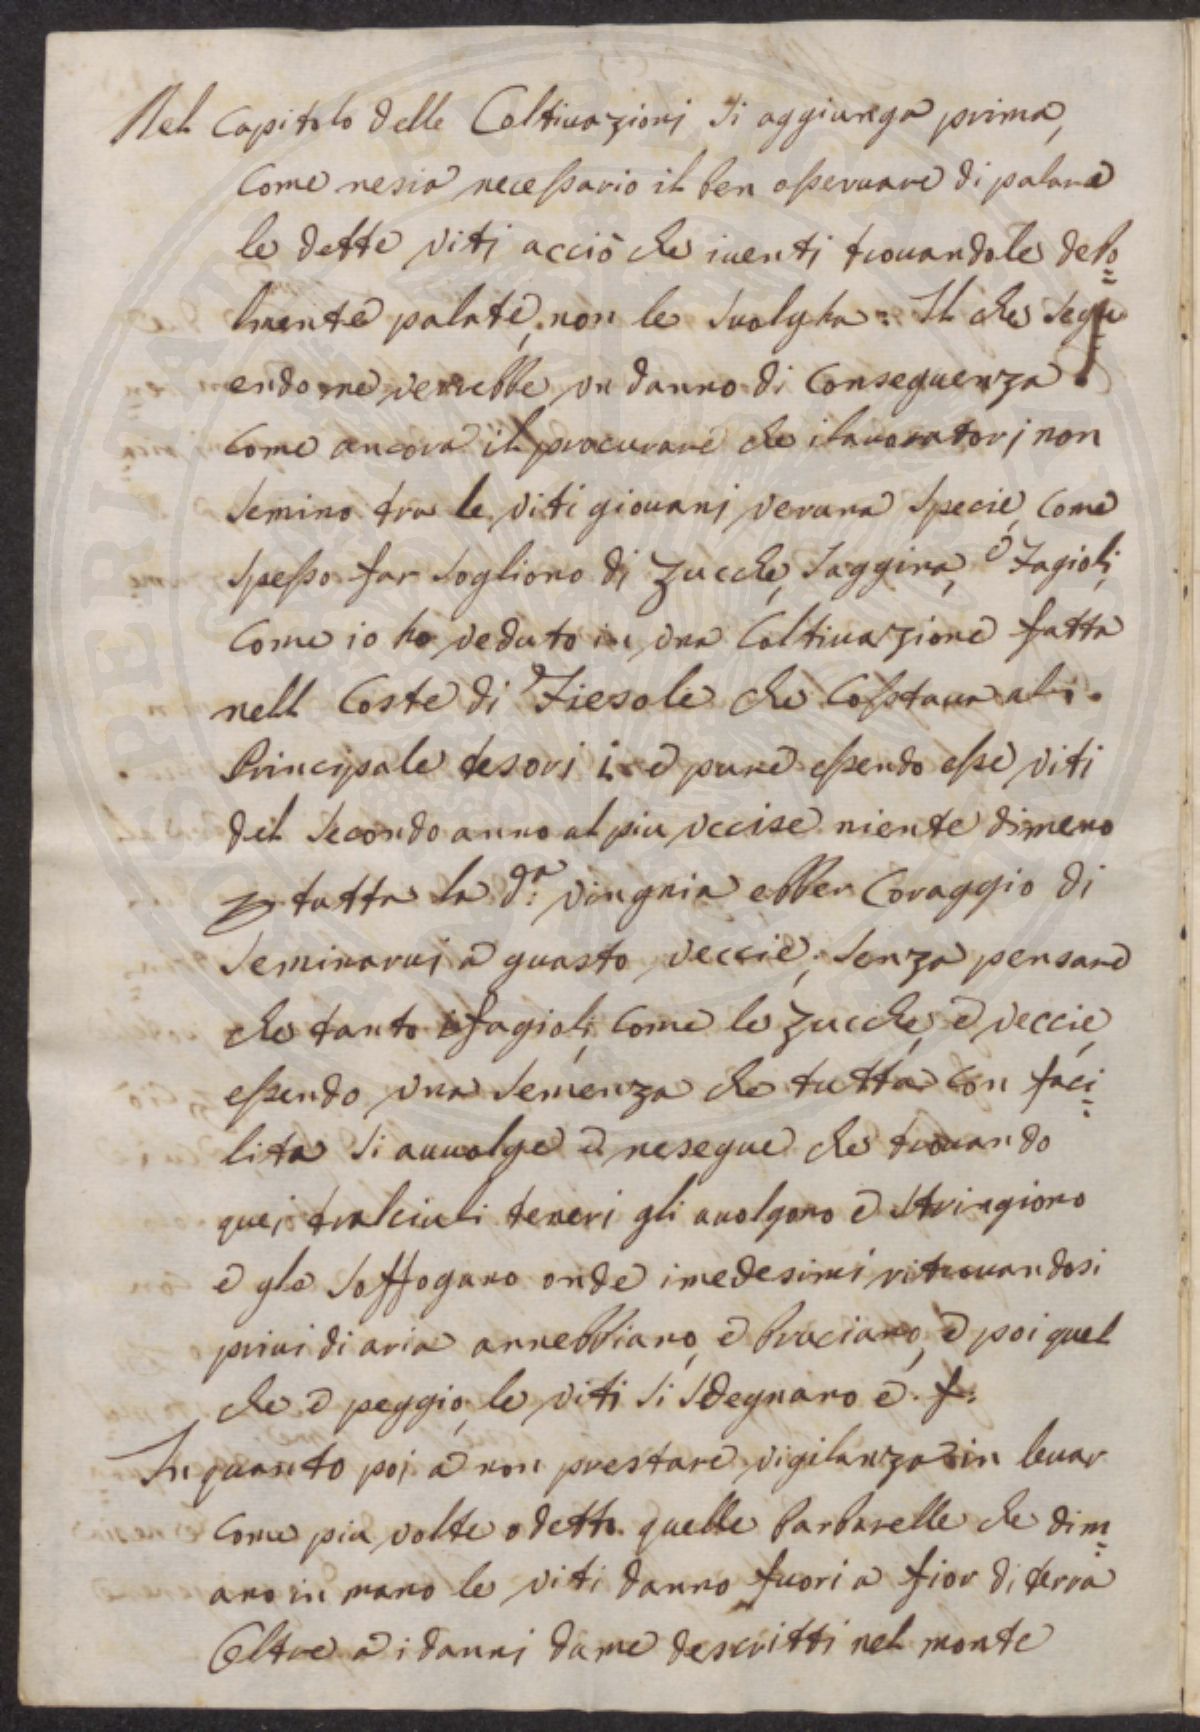 Nel Capitolo delle Coltiuazionj si aggiunga prima,
Come nesia necessario il ben osseruare di palare
le dette viti acciò che iuentj trouandole debo=
lmente palate, non le suolgha: Il che segu=
endo ne verrebbe vn danno di Conseguenza.
Come ancora il procurare che ilauoratorj non
semino tra le viti giouanj veruna specie, come
spesso far sogliono di Zucche, saggina, o Fagioli,
Come io ho veduto in vna Coltiuazione fatta
nell Coste di Fiesole che Costaua al
Principale tesorj e pure essendo esse viti
del secondo anno al piu vccise niente dimeno
tutta la d.a vingnia ebber Coraggio di
seminaruj a guasto veccie, senza pensare
che tanto ifagioli, come le Zucche, e veccie,
essendo vna semenza che tutta con faci=
lita si auuolge e nesegue che trouando
quei tralciuli teneri gli auolgono e stringiono
e gle soffogano onde imedesimi ritrouandosi
priui di aria annebbiano, e bruciano, e poi quel
che e peggio, le viti si sdegnano e. f:
In quanto poi a non prestare vigilanza in leuar
Come piu volte o detto quelle barbarelle che dim=
ano in mano le viti danno fuori a fior di terra
Oltre a i dannj da me descritti nel monte